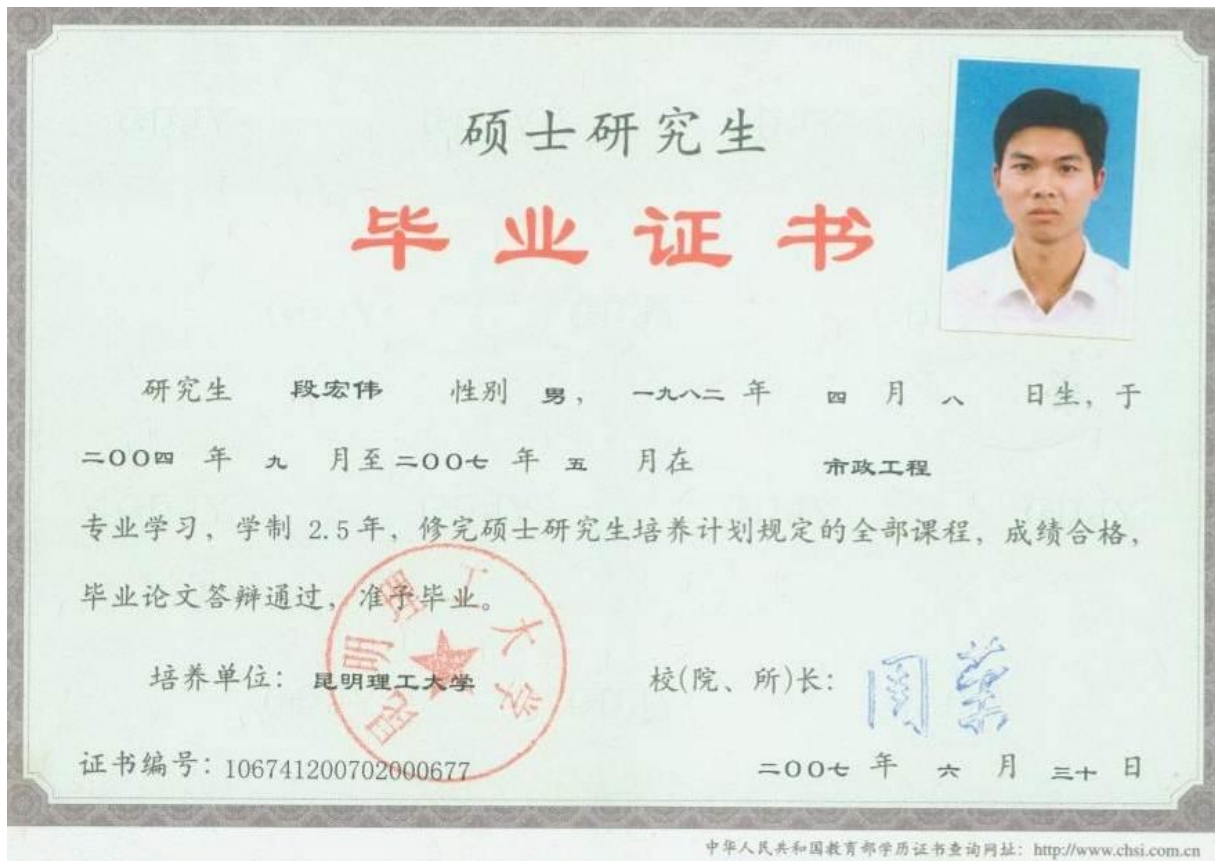 硕士研究生
毕业证书
研究生 段宏伟 性别 男， 一九八二 年 四 月 八 日生，于
二〇〇四 年 九 月至 二〇〇七 年 五 月在 市政工程
专业学习，学制 2.5 年，修完硕士研究生培养计划规定的全部课程，成绩合格，
毕业论文答辩通过，准予毕业。
昆明理工大学
培养单位：昆明理工大学 校(院、所)长：周荣
证书编号：106741200702000677 二〇〇七 年 六 月 三十 日
中华人民共和国教育部学历证书查询网址：http://www.chsi.com.cn